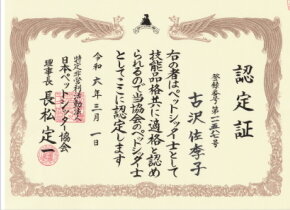 認定証
登録番号 第一一五七号
古沢佐季子
右の者はペットシッター士として
技能品格共に適格と認め
られるので当協会のペットシッター士
としてここに認定します
令和六年三月一日
特定非営利活動法人
日本ペットシッター協会
理事長 長松定一